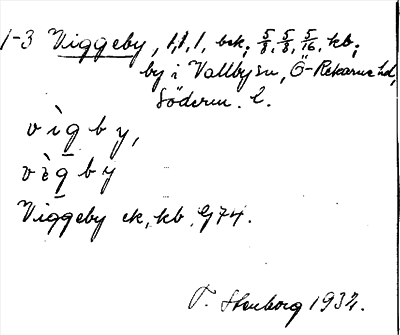 1-3 Viggeby, 1,1,1, bek; 5/8, 5/8, 5/16, kb;
by i Vallby sn, Ö-Rekarne hd,
Söderm. l.
vìgby,
vìg̅by
Viggeby ek, kb, G74.
T. Stenborg 1932.